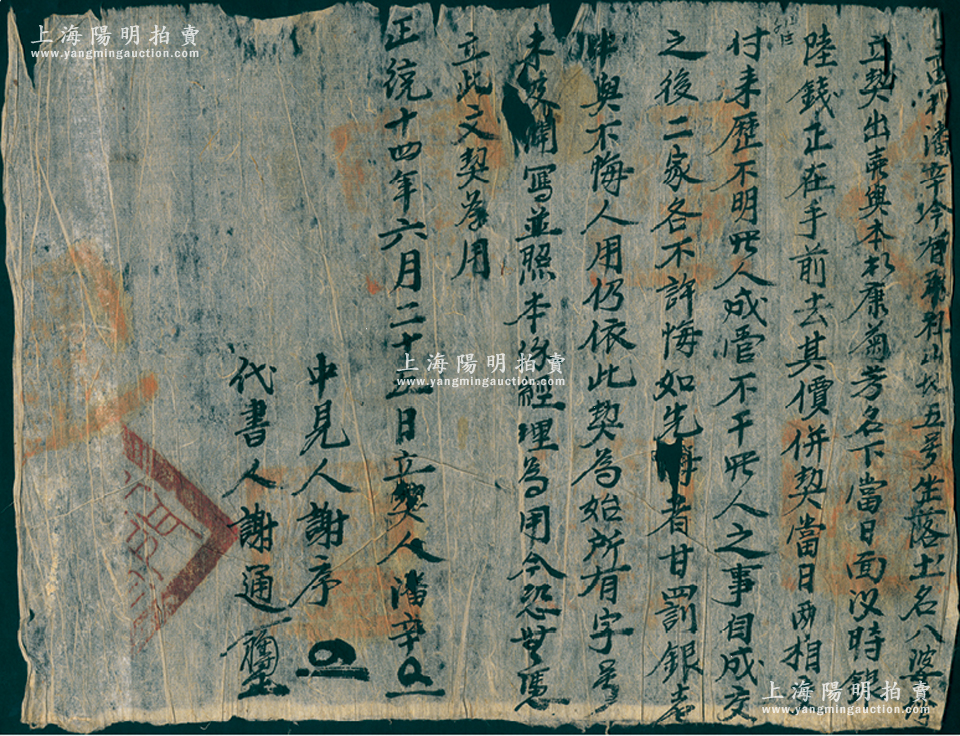 潘辛 五号坐落土名八
立契出賣與本都康菊芳名下當日面议時
陸錢正在手前去其價併契當日兩相
付未歷不明賣人成管不干買人之事自成交
之後二家各不許悔如先悔者甘罰銀
中與不悔人用仍依此契為始所有字号
未及開寫並照本保經理為用今恐無憑
立此文契為用
正統十四年六月二十 日立契人潘辛
中見人謝序
代書人謝通
上海陽明拍賣
www.yangmingauction.com
上海陽明拍賣
www.yangmingauction.com
上海陽明拍賣
www.yangmingauction.com
上海陽明拍賣
www.yangmingauction.com